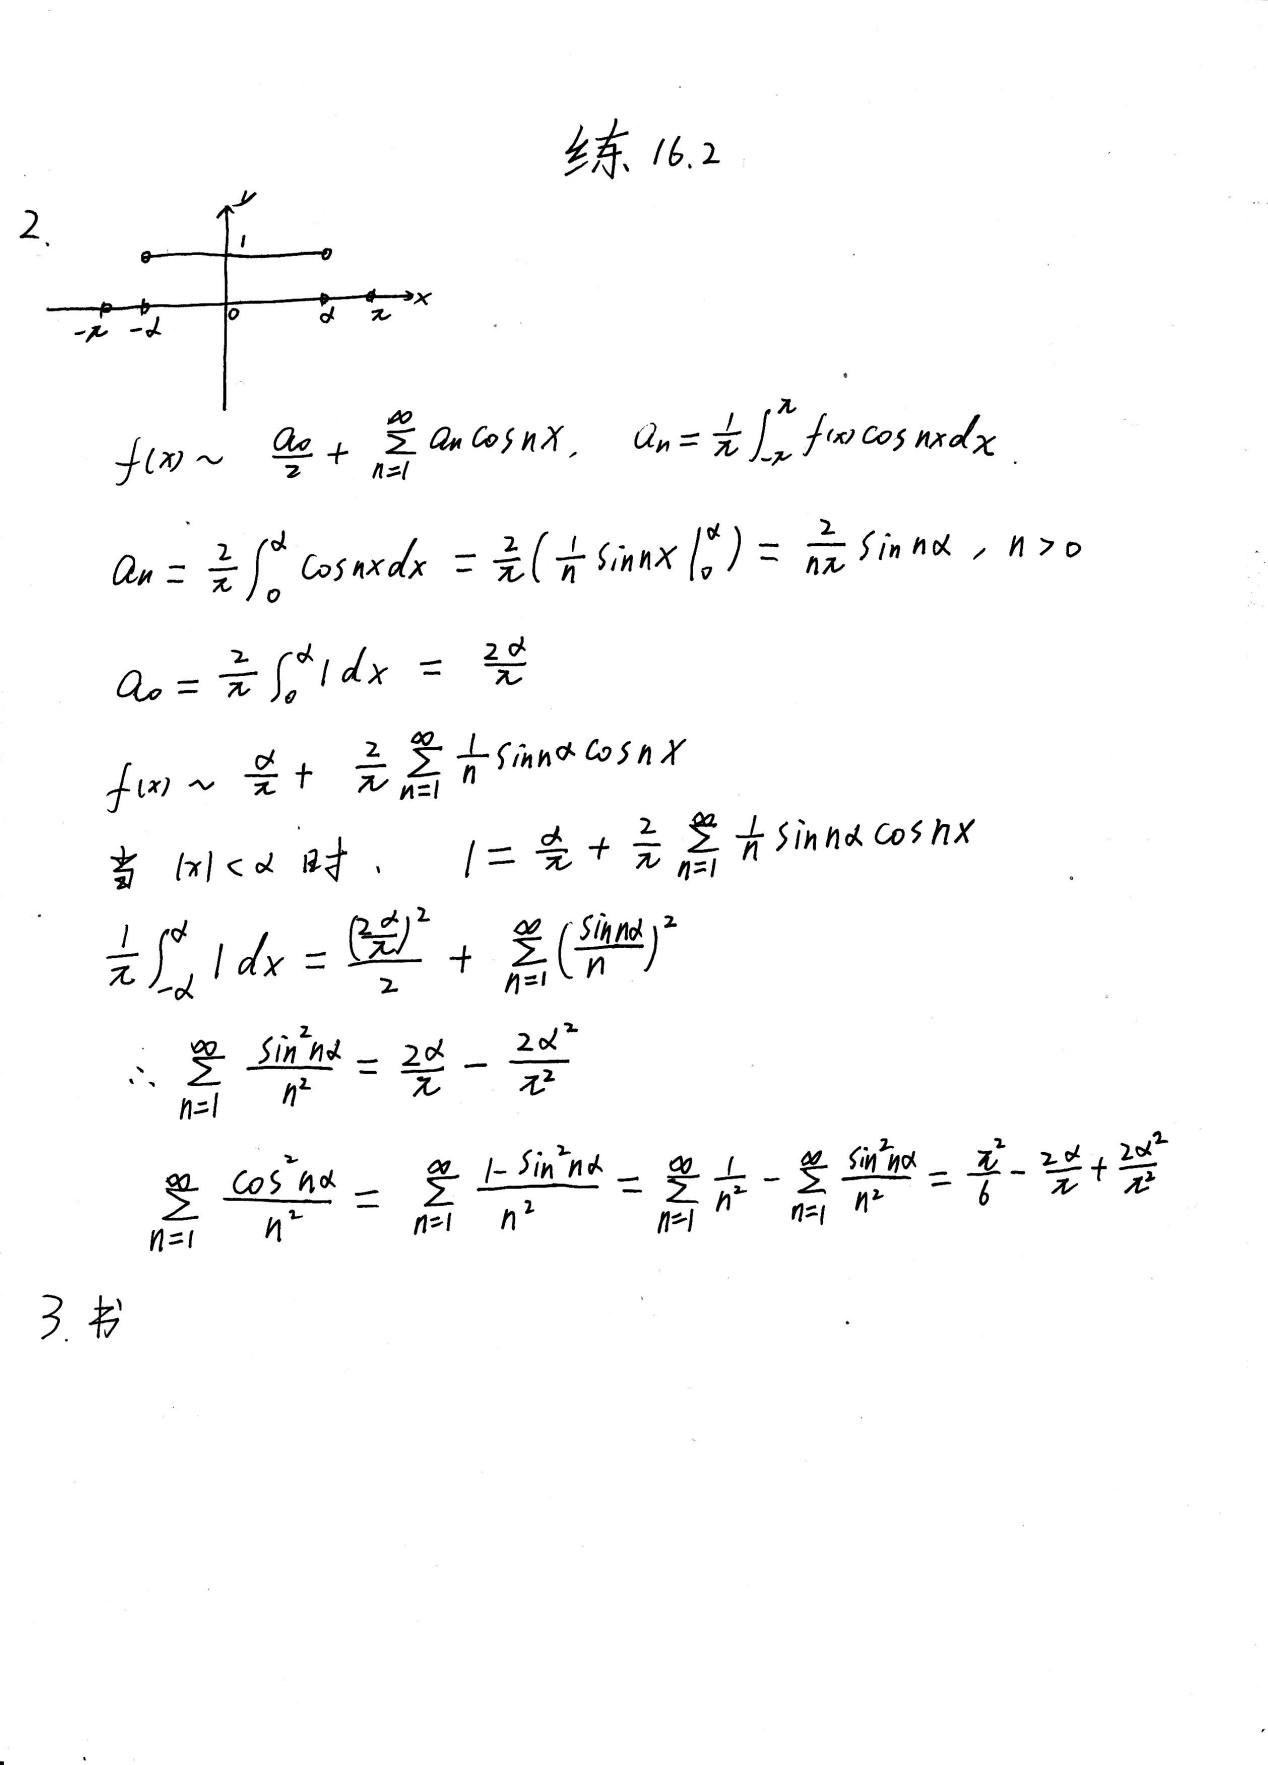 练 16.2
2.
y
1
-π -α 0 α π x
f(x) ~ a₀/2 + ∑_{n=1}^{∞} aₙ cos nx, aₙ = 1/π ∫_{-π}^{π} f(x) cos nx dx.
aₙ = 2/π ∫_0^α cos nx dx = 2/π (1/n sin nx |_0^α) = 2/(nπ) sin nα, n>0
a₀ = 2/π ∫_0^α 1 dx = 2α/π
f(x) ~ α/π + 2/π ∑_{n=1}^{∞} 1/n sin nα cos nx
当 |x|<α 时, 1 = α/π + 2/π ∑_{n=1}^{∞} 1/n sin nα cos nx
1/π ∫_{-α}^{α} 1 dx = (2α/π)²/2 + ∑_{n=1}^{∞} (sin nα/n)²
∴ ∑_{n=1}^{∞} sin²nα/n² = 2α/π - 2α²/π²
∑_{n=1}^{∞} cos²nα/n² = ∑_{n=1}^{∞} (1-sin²nα)/n² = ∑_{n=1}^{∞} 1/n² - ∑_{n=1}^{∞} sin²nα/n² = π²/6 - 2α/π + 2α²/π²
3. 书